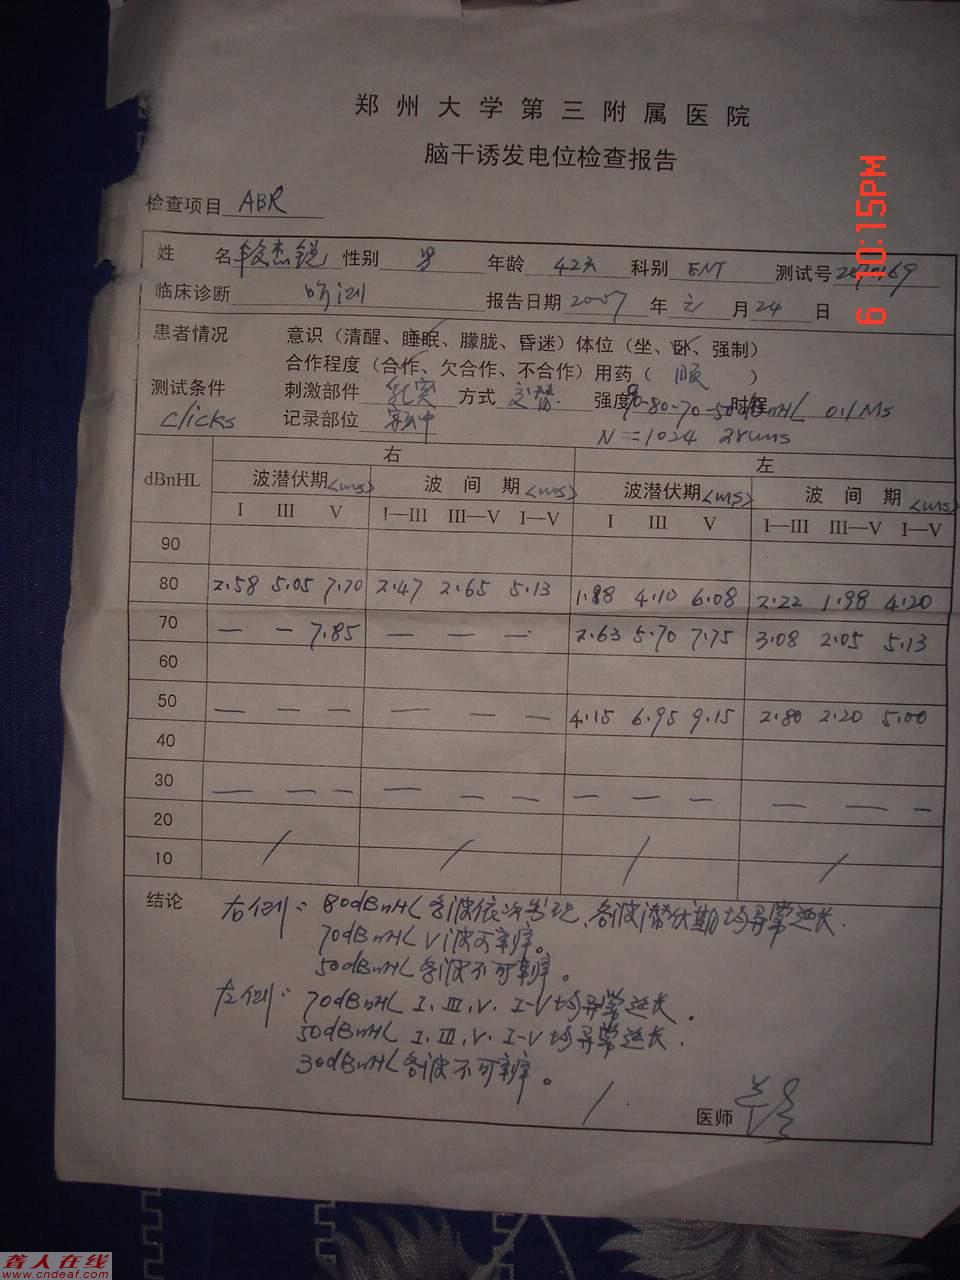 郑州大学第三附属医院
脑干诱发电位检查报告
检查项目 ABR
6 10:15PM
姓 名 段杰锐 性别 男 年龄 42天 科别 ENT 测试号
临床诊断 听测 报告日期 2007 年 月 24 日
患者情况 意识（清醒、睡眠、朦胧、昏迷）体位（坐、卧、强制）
合作程度（合作、欠合作、不合作）用药（ ）
测试条件 刺激部件 乳突 方式 交替 强度 -80-70-50 nHL 时程 0.1Ms
clicks 记录部位 N=1024 2runs
dBnHL 右 左
波潜伏期<ms> 波间期<ms> 波潜伏期<ms> 波间期<ms>
I III V I—III III—V I—V I III V I—III III—V I—V
90
80 2.58 5.05 7.70 2.47 2.65 5.13 1.88 4.10 6.08 2.22 1.98 4.20
70 — — 7.85 — — — 2.63 5.70 7.75 3.08 2.05 5.13
60
50 — — — — — — 4.15 6.95 9.15 2.80 2.20 5.00
40
30 — — — — — — — — — — — —
20
10 / / / /
结论 右侧: 80dBnHL 各波依次出现、各波潜伏期均异常延长.
70dBnHL V波可辨。
50dBnHL 各波不可辨。
左侧: 70dBnHL I、III、V、I-V均异常延长.
50dBnHL I、III、V、I-V均异常延长.
30dBnHL各波不可辨。
医师
聋人在线
www.cndeaf.com